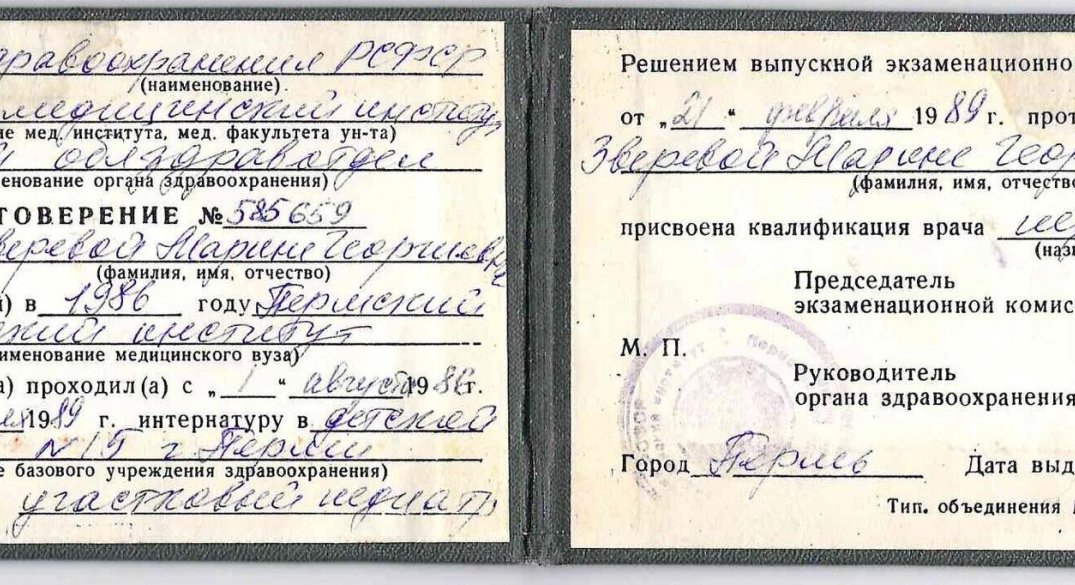 дравоохранения РСФСР
(наименование).
медицинский институт
ие мед. института, мед. факультета ун-та)
й облздравотдел
менование органа здравоохранения)
ТОВЕРЕНИЕ № 585659
веревой Марине Георгиевне
(фамилия, имя, отчество)
) в 1986 году Пермский
ский институт
именование медицинского вуза)
а) проходил(а) с „1“ августа 1986 г.
1989 г. интернатуру в детской
№ 15 г. Перми
е базового учреждения здравоохранения)
участковый педиатр
Решением выпускной экзаменационно
от „21“ февраля 1989 г. прот
Зверевой Марине Геор
(фамилия, имя, отчество
присвоена квалификация врача пед
(назв
Председатель
экзаменационной комис
М. П.
Руководитель
органа здравоохранения
Город Пермь Дата выд
Тип. объединения